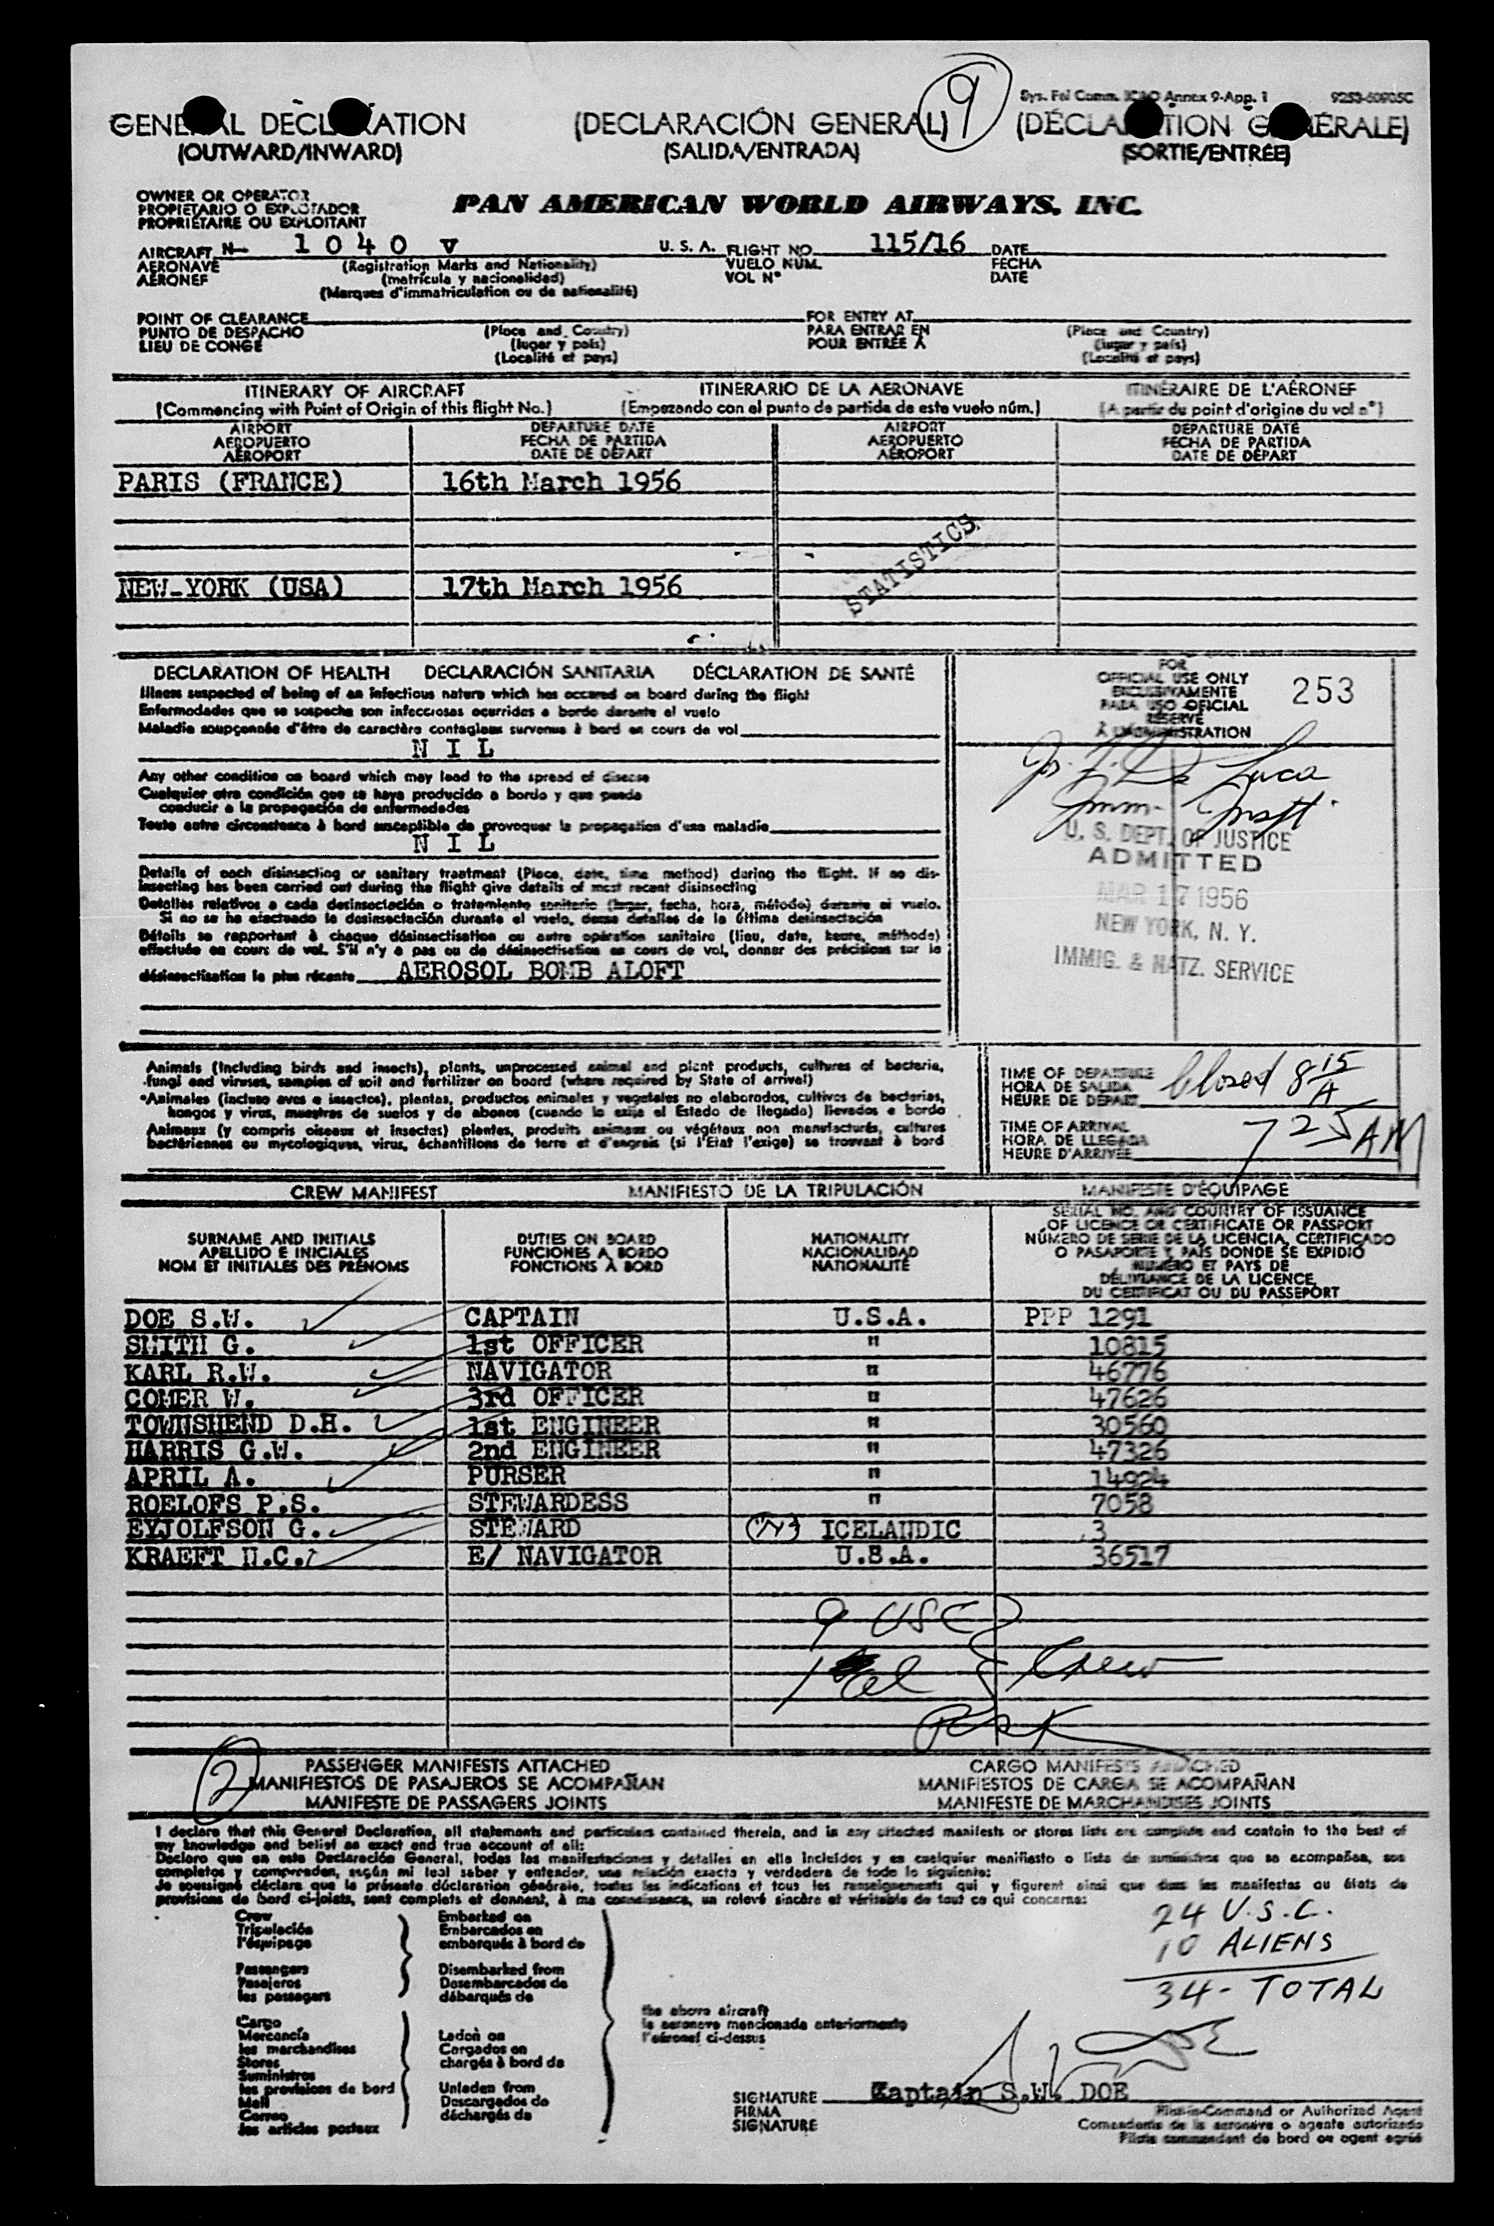 9
Annex 9-App. 1
9253-60905C
GENERAL DECLARATION (DECLARACIÓN GENERAL) (DÉCLARATION GÉNÉRALE)
(OUTWARD/INWARD) (SALIDA/ENTRADA) (SORTIE/ENTRÉE)
OWNER OR OPERATOR
PROPIETARIO O EXPLOTADOR
PROPRIÉTAIRE OU EXPLOITANT
PAN AMERICAN WORLD AIRWAYS, INC.
AIRCRAFT N- 1040 V U. S. A. FLIGHT NO. 115/16 DATE
AERONAVE (Registration Marks and Nationality) VUELO NÚM. FECHA
AÉRONEF (matrícula y nacionalidad) VOL N° DATE
(Marques d'immatriculation ou de nationalité)
POINT OF CLEARANCE FOR ENTRY AT
PUNTO DE DESPACHO (Place and Country) PARA ENTRAR EN (Place and Country)
LIEU DE CONGÉ (lugar y país) POUR ENTRÉE A (lugar y país)
(Localité et pays) (Localité et pays)
ITINERARY OF AIRCRAFT ITINERARIO DE LA AERONAVE ITINÉRAIRE DE L'AÉRONEF
(Commencing with Point of Origin of this flight No.) (Empezando con el punto de partida de este vuelo núm.) (A partir du point d'origine du vol n°)
AIRPORT DEPARTURE DATE AIRPORT DEPARTURE DATE
AEROPUERTO FECHA DE PARTIDA AEROPUERTO FECHA DE PARTIDA
AÉROPORT DATE DE DÉPART AÉROPORT DATE DE DÉPART
PARIS (FRANCE) 16th March 1956
STATISTICS
NEW-YORK (USA) 17th March 1956
DECLARATION OF HEALTH DECLARACIÓN SANITARIA DÉCLARATION DE SANTÉ
Illness suspected of being of an infectious nature which has occured on board during the flight
Enfermedades que se sospecha son infecciosas ocurridas a bordo durante el vuelo
Maladie soupçonnée d'être de caractère contagieux survenue à bord en cours de vol
NIL
Any other condition on board which may lead to the spread of disease
Cualquier otra condición que se haya producido a bordo y que pueda
conducir a la propagación de enfermedades
Toute autre circonstance à bord susceptible de provoquer la propagation d'une maladie
NIL
Details of each disinsecting or sanitary treatment (Place, date, time method) during the flight. If no dis-
insecting has been carried out during the flight give details of most recent disinsecting
Detalles relativos a cada desinsectación o tratamiento sanitario (lugar, fecha, hora, método) durante el vuelo.
Si no se ha efectuado la desinsectación durante el vuelo, dense detalles de la última desinsectación
Détails se rapportant à chaque désinsectisation ou autre opération sanitaire (lieu, date, heure, méthode)
effectuée en cours de vol. S'il n'y a pas eu de désinsectisation en cours de vol, donner des précisions sur la
désinsectisation la plus récente AEROSOL BOMB ALOFT
FOR
OFFICIAL USE ONLY
EXCLUSIVAMENTE
PARA USO OFICIAL
RÉSERVÉ
À L'ADMINISTRATION
253
De Luca
Imm. Inspt.
U. S. DEPT. OF JUSTICE
ADMITTED
MAR 17 1956
NEW YORK, N. Y.
IMMIG. & NATZ. SERVICE
Animals (Including birds and insects), plants, unprocessed animal and plant products, cultures of bacteria,
fungi and viruses, samples of soil and fertilizer on board (where required by State of arrival)
Animales (incluso aves e insectos), plantas, productos animales y vegetales no elaborados, cultivos de bacterias,
hongos y virus, muestras de suelos y de abonos (cuando lo exija el Estado de llegada) llevados a bordo
Animaux (y compris oiseaux et insectes) plantes, produits animaux ou végétaux non manufacturés, cultures
bactériennes ou mycologiques, virus, échantillons de terre et d'engrais (si l'Etat l'exige) se trouvant à bord
TIME OF DEPARTURE
HORA DE SALIDA
HEURE DE DÉPART
Closed 8 15 A
TIME OF ARRIVAL
HORA DE LLEGADA
HEURE D'ARRIVÉE
7 25 AM
CREW MANIFEST MANIFIESTO DE LA TRIPULACIÓN MANIFESTE D'ÉQUIPAGE
SURNAME AND INITIALS
APELLIDO E INICIALES
NOM ET INITIALES DES PRÉNOMS
DUTIES ON BOARD
FUNCIONES A BORDO
FONCTIONS À BORD
NATIONALITY
NACIONALIDAD
NATIONALITÉ
SERIAL NO. AND COUNTRY OF ISSUANCE
OF LICENCE OR CERTIFICATE OR PASSPORT
NÚMERO DE SERIE DE LA LICENCIA, CERTIFICADO
O PASAPORTE Y PAÍS DONDE SE EXPIDIÓ
NUMÉRO ET PAYS DE
DÉLIVRANCE DE LA LICENCE,
DU CERTIFICAT OU DU PASSEPORT
DOE S.W. CAPTAIN U.S.A. PPP 1291
SMITH G. 1st OFFICER " 10815
KARL R.W. NAVIGATOR " 46776
COMER W. 3rd OFFICER " 47626
TOWNSHEND D.H. 1st ENGINEER " 30560
HARRIS G.W. 2nd ENGINEER " 47326
APRIL A. PURSER " 14924
ROELOFS P.S. STEWARDESS " 7058
EYJOLFSON G. STEWARD ICELANDIC 3
KRAEFT H.C. E/ NAVIGATOR U.S.A. 36517
9 USC
1 al Crew
PASSENGER MANIFESTS ATTACHED CARGO MANIFESTS ATTACHED
2 MANIFIESTOS DE PASAJEROS SE ACOMPAÑAN MANIFIESTOS DE CARGA SE ACOMPAÑAN
MANIFESTE DE PASSAGERS JOINTS MANIFESTE DE MARCHANDISES JOINTS
I declare that this General Declaration, all statements and particulars contained therein, and in any attached manifests or stores lists are complete and contain to the best of
my knowledge and belief an exact and true account of all:
Declaro que en esta Declaración General, todas las manifestaciones y detalles en ella incluidos y en cualquier manifiesto o lista de suministros que se acompañan, son
completos y comprenden, según mi leal saber y entender, una relación exacta y verdadera de todo lo siguiente:
Je soussigné déclare que la présente déclaration générale, toutes les indications et tous les renseignements qui y figurent ainsi que dans les manifestes ou états de
provisions de bord ci-joints, sont complets et donnent, à ma connaissance, un relevé sincère et véritable de tout ce qui concerne:
Crew Embarked on
Tripulación Embarcados en
l'équipage embarqués à bord de
Passengers Disembarked from
Pasajeros Desembarcados de
les passagers débarqués de
24 U.S.C.
10 ALIENS
34 - TOTAL
the above aircraft
la aeronave mencionada anteriormente
l'aéronef ci-dessus
Cargo
Mercancía Laden on
les marchandises Cargados en
Stores chargés à bord de
Suministros
les provisions de bord Unladen from
Mail Descargados de
Correo déchargés de
les articles postaux
SIGNATURE Captain S.W. DOE
FIRMA Pilot-in-Command or Authorized Agent
SIGNATURE Comandante de la aeronave o agente autorizado
Pilote commandant de bord ou agent agréé